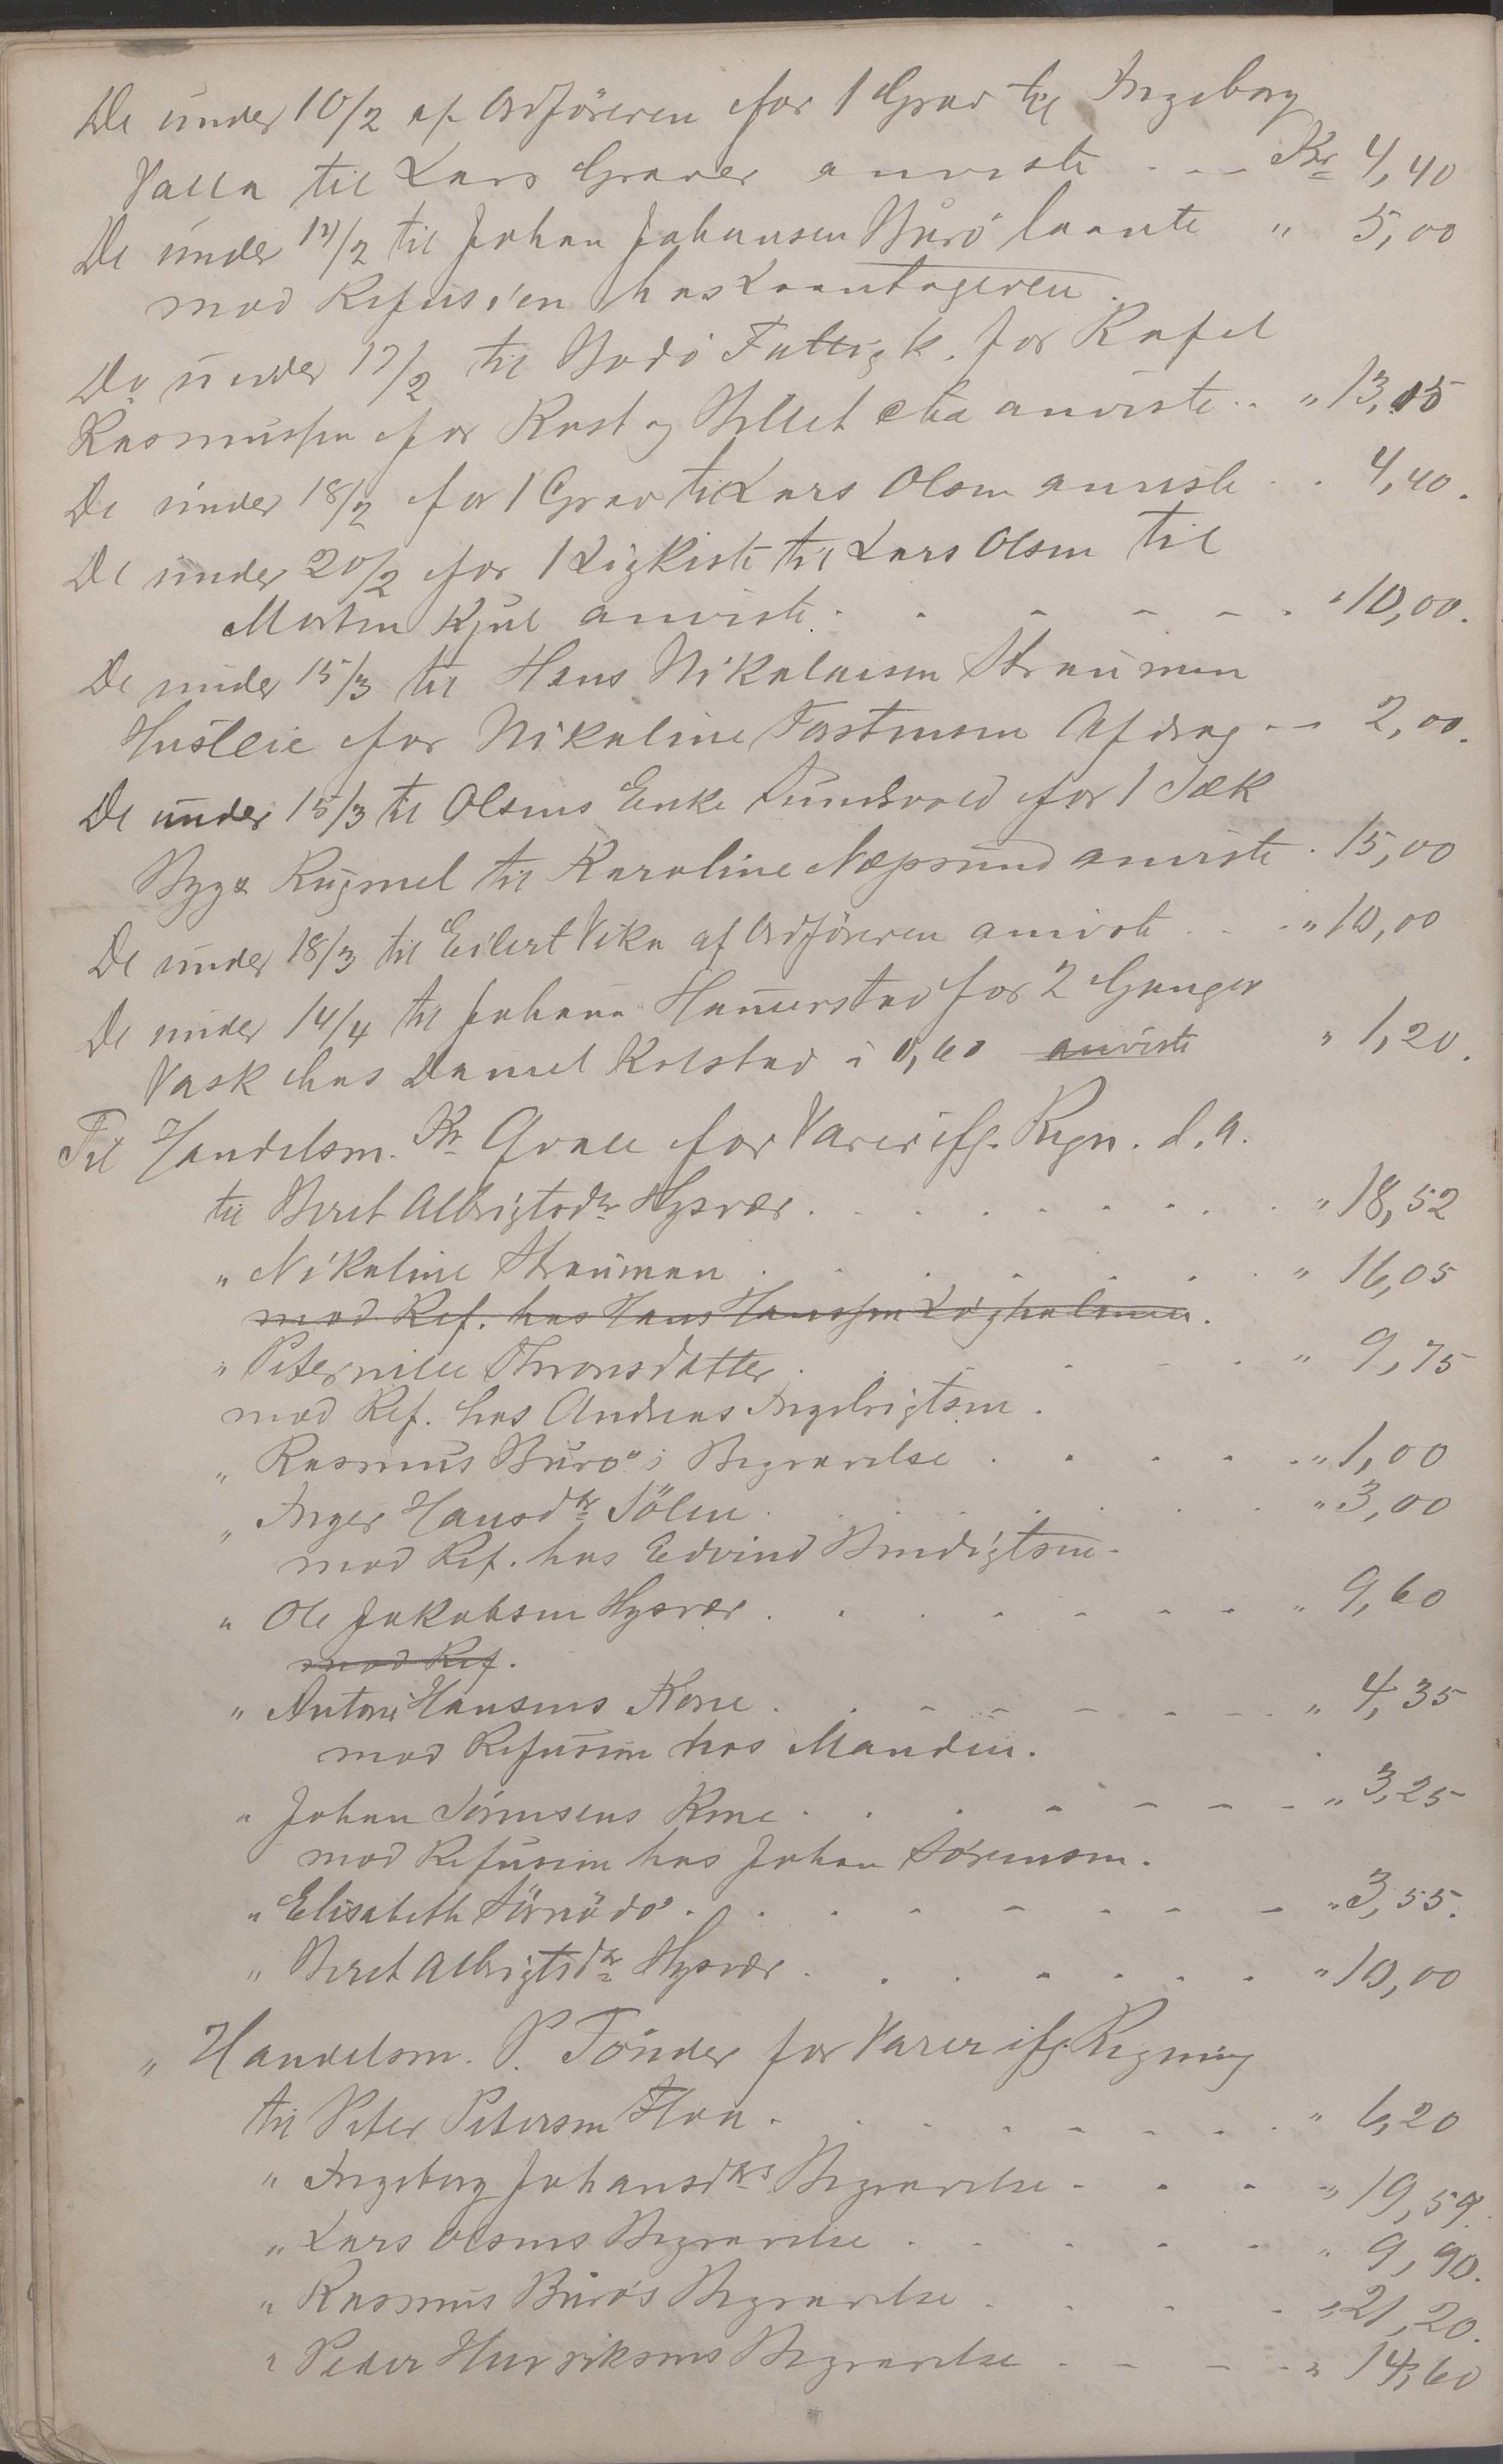 De under 10/2 af Ordföreren for 1 Grav til Ingeborg
Valla til Lars Graver anviste - - - Kr 4,40
De under 12/2 til Johan Johansen Burö laante " 5,00
mod Refusion hos Laantageren.
De under 17/2 til Bodö Fattigk. for Rafel
Rasmussen for Kost og Billet etc anviste . . " 13,05
De under 18/2 for 1 Grav til Lars Olsen anviste . . 4,40.
De under 20/2 for 1 Ligkiste til Lars Olsen til
Morten Kjul anviste . . - - - - . " 10,00.
De under 15/3 til Hans Nikolaisen Straumen
Husleie for Nikoline Torstensen Afdrag - - 2,00.
De under 15/3 til Olsens Enke Sundsvold for 1 Sæk
Bygg Rugmel til Karoline Næpsund anviste . 15,00
De under 18/3 til Eilert Vika af Ordföreren anviste . . . " 10,00
De under 14/4 til Johan Hamerstad for 2 Ganger
Vask hos Daniel Kolstad à 0,60 anviste " 1,20.
Til Handelsm. Kr Qvale for Varer ifg. Regn. d. a.
til Beret Albrigtsdtr Hysvær . . . . . . . . . " 18,52
" Nikoline Strauman . . . . . . . " 16,05
mod Ref. hos Hans Hanssen Ligholmen.
" Peternille Thronsdatter . . . . - . " 9,75
mod Ref. hos Andreas Ingebrigtsen.
" Rasmus Burö's Begravelse . . . . . " 1,00
" Inger Hansdtr Sölen . . . . . . . " 3,00
mod Ref. hos Edvind Bendigtsen.
" Ole Jakobsen Hysvær . . . . . - - " 9,60
mod Ref.
" Anton Hansens Kone . . - - - - - . " 4,35
mod Refusion hos Manden.
" Johan Sörensens Kone . . . - - - - " 3,25
mod Refusion hos Johan Sörensen.
" Elisabeth Sörnödö . . . - - - - - " 3,55.
" Beret Albrigtsdtr Hysvær . . . . . . . " 10,00
" Handelsm. P. Tönder for Varer ifg. Regning
til Peter Petersen Floa . . . . - - . . " 6,20
" Ingeborg Johansdtrs Begravelse . . . " 19,59.
" Lars Olsens Begravelse . . . . . " 9,90.
" Rasmus Burös Begravelse . . . . " 21,20.
" Peder Henriksens Begravelse . - - - " 14,60